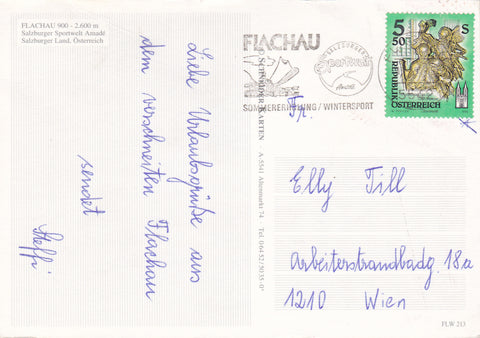 FLACHAU 900 - 2.600 m
Salzburger Sportwelt Amadé
Salzburger Land, Österreich
Liebe Urlaubsgrüße aus
dem verschneiten Flachau
sendet
Steffi
KARTEN · A-5541 Altenmarkt 74 Tel. 06452/5035-0
FLACHAU
SALZBURGER
Sportwelt
Amadé
SOMMERERHOLUNG / WINTERSPORT
5 50
S
REPUBLIK
ÖSTERREICH
Fr.
Elly Till
Arbeiterstrandbadg. 18a
1210 Wien
FLW 213